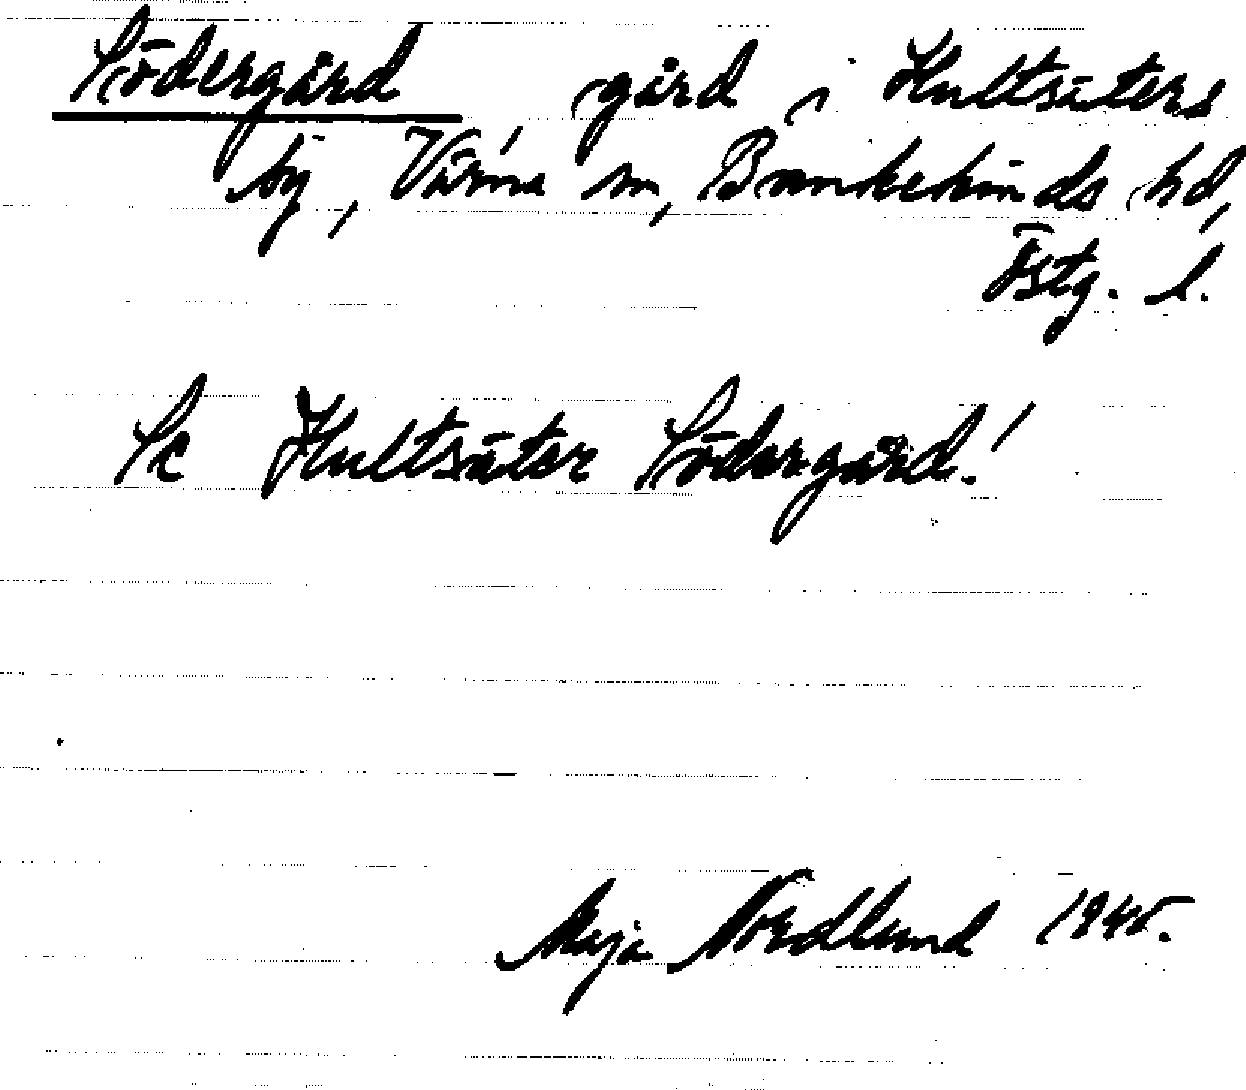 Södergård gård i Hultsäters
by, Vårna sn, Bankekinds hd,
Östg. l.
Se Hultsäter Södergård!
Maja Nordlund 1945.